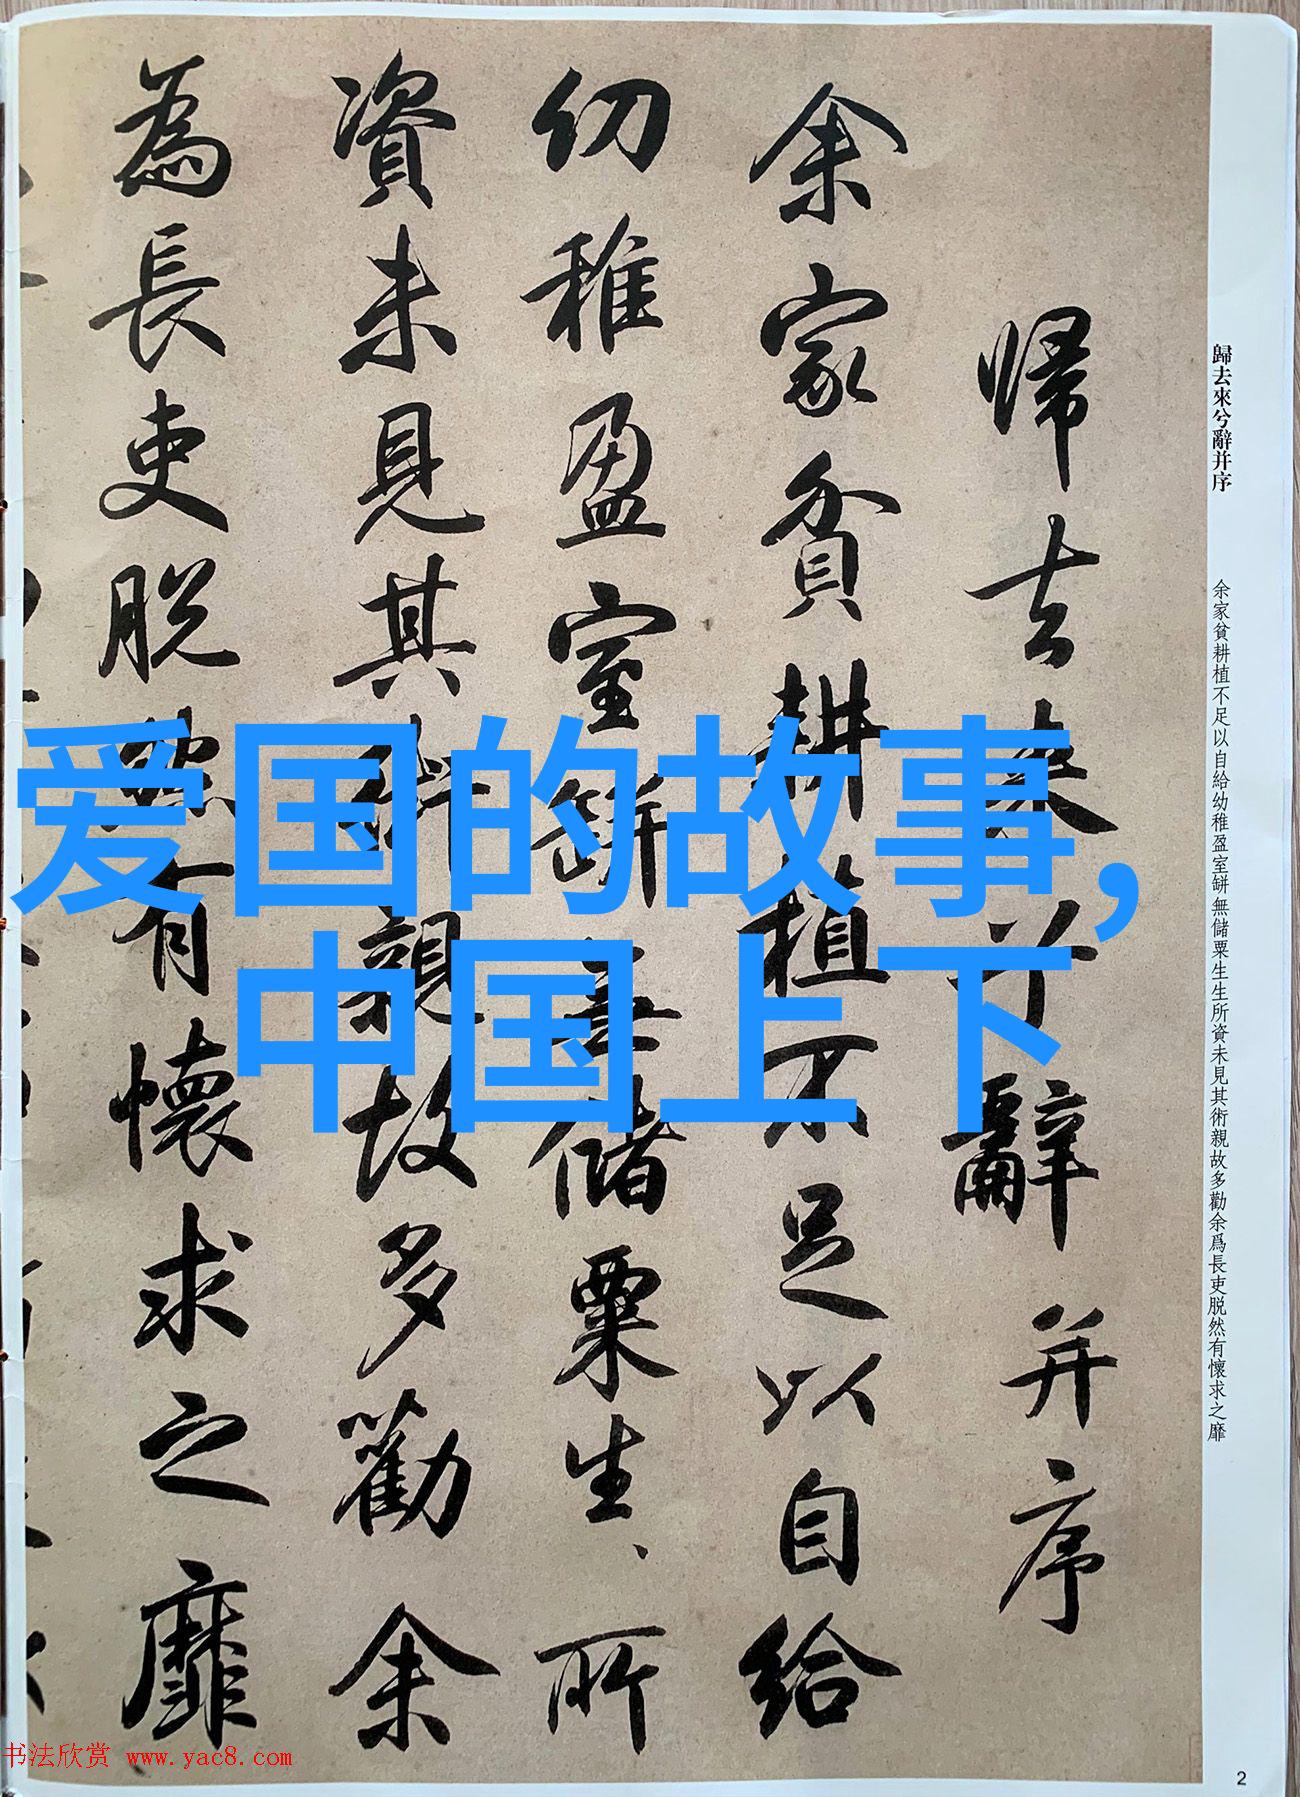 歸去來兮辭并序
余家貧耕植不足以自給幼稚盈室缾無儲粟生生所資未見其術親故多勸余爲長吏脱然有懷求之靡
帰去来兮辭并序
余家貧耕植不足以自給
幼稚盈室缾無儲粟生、所
資未見其術親故多勸余
為長吏脱然有懷求之靡
爱国的故事，
中国上下
书法欣赏 www.yac8.com
2